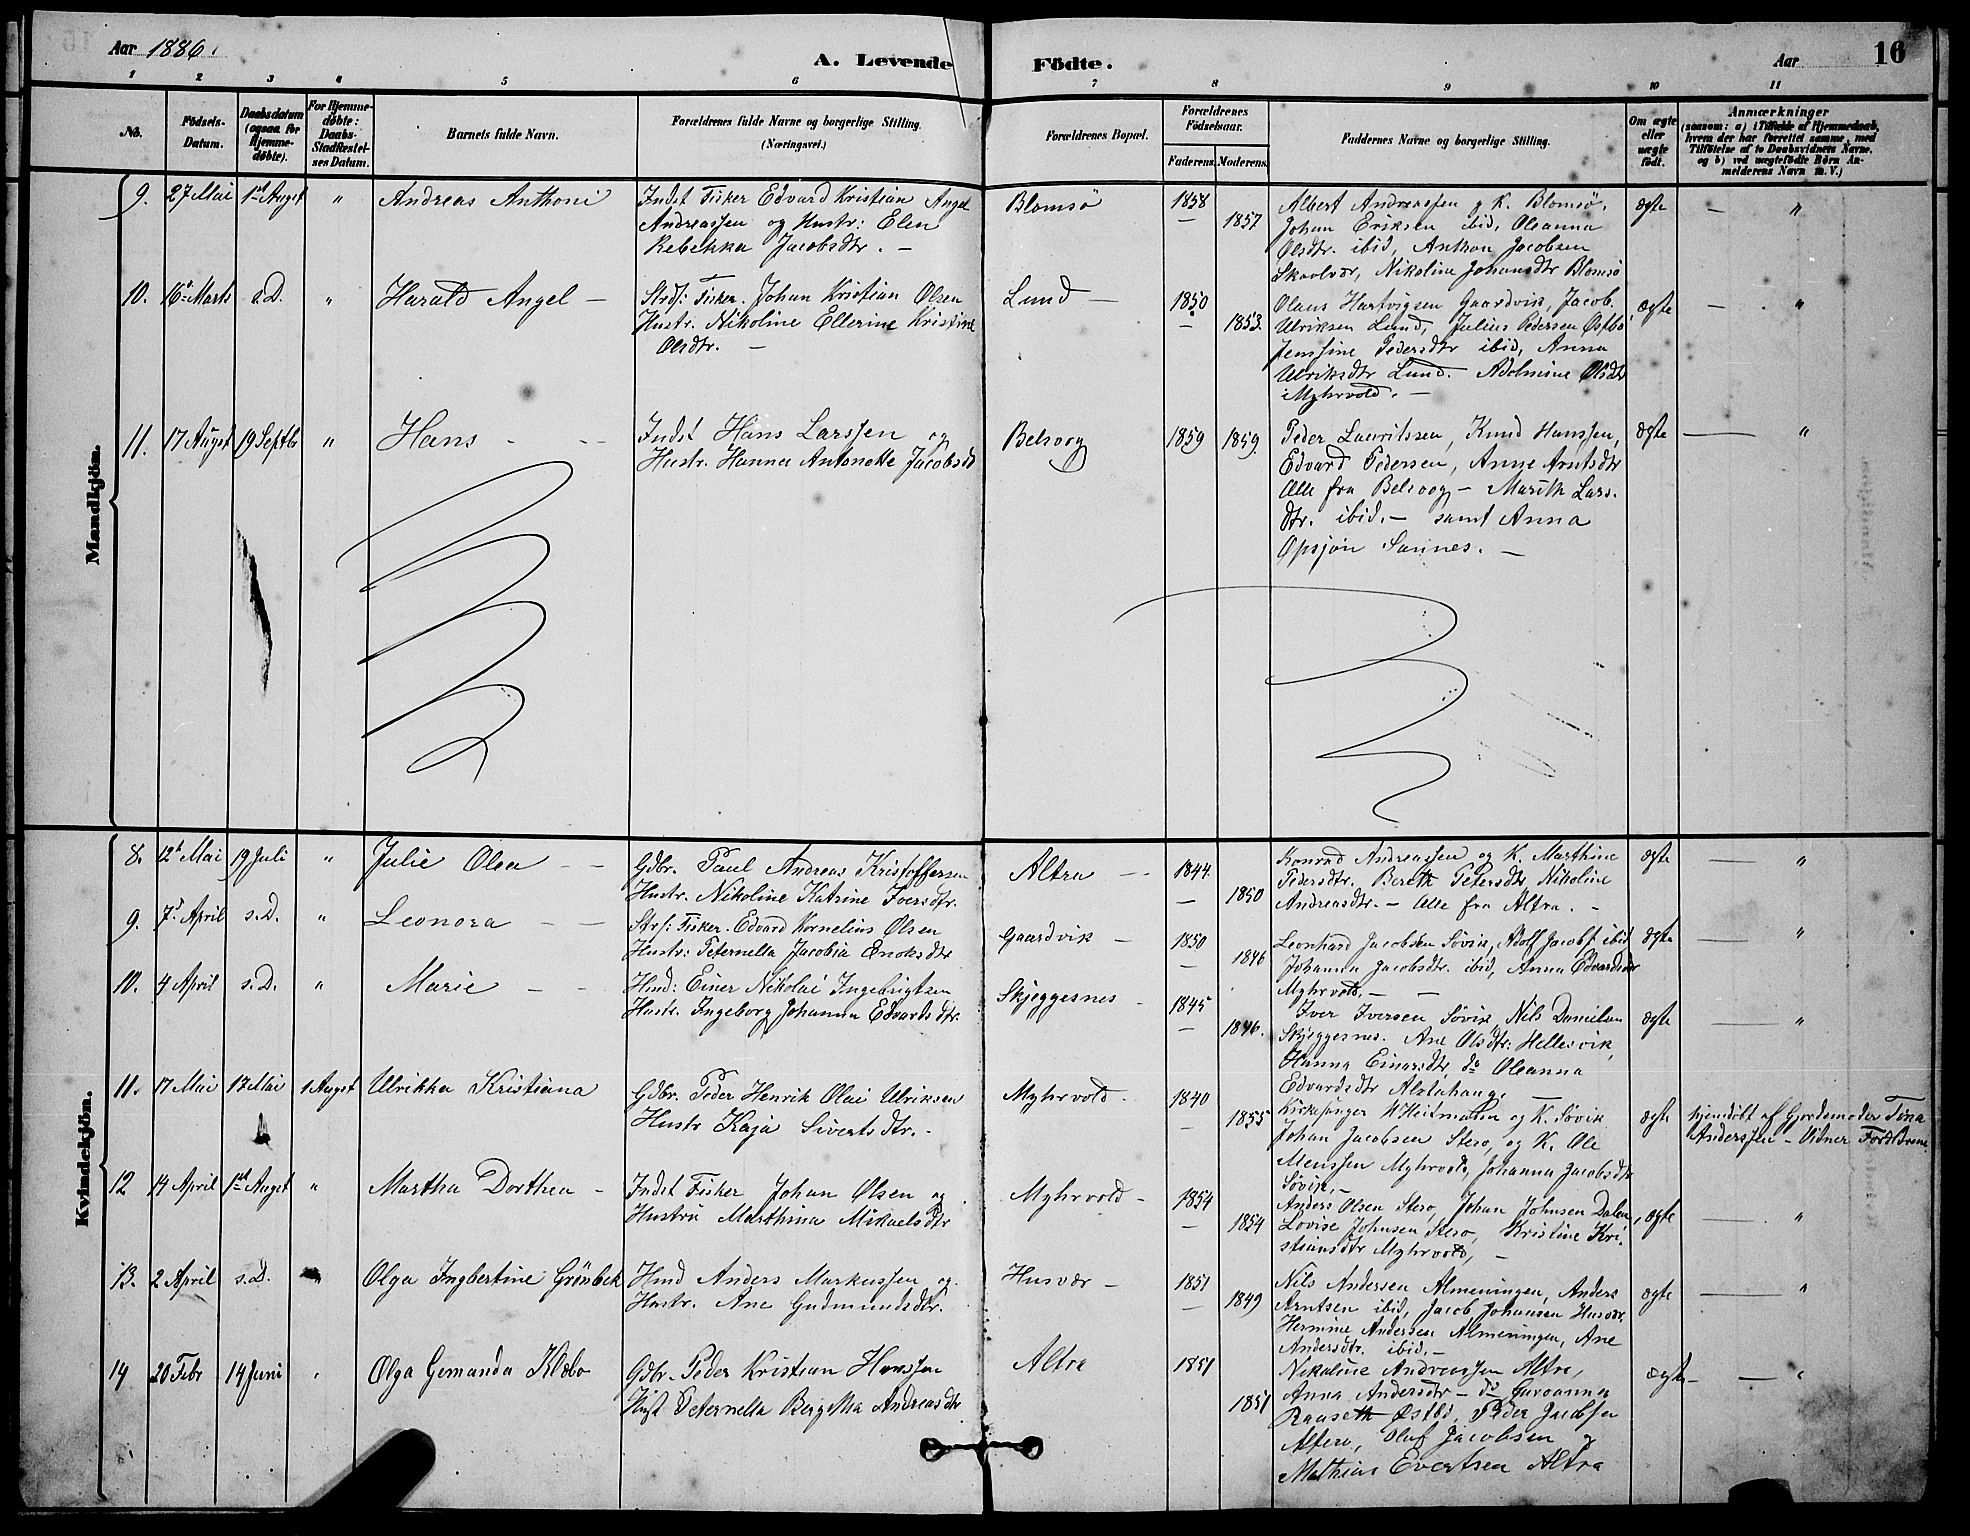 Aar 1886.
A. Levende Födte.
Aar
16
1 2 3 4 5 6 7 8 9 10 11
No.
Födsels-Datum.
Daabsdatum (ogsaa for Hjemme-døbte).
For Hjemme-døbte: Daabs-Stadfæstelses Datum.
Barnets fulde Navn.
Forældrenes fulde Navne og borgerlige Stilling.
(Næringsvei.)
Forældrenes Bopæl.
Forældrenes Födselsaar.
Faderens. Moderens.
Faddernes Navne og borgerlige Stilling.
Om ægte eller uægte født.
Anmærkninger
(saasom: a) i Tilfælde af Hjemmedaab,
hvem der har forrettet samme, med
Tilföielse af to Daabsvidners Navne,
og b) ved uægtefödte Börn An-
melderens Navn m. V.)
Mandkjön.
9. 27 Mai 1st Augst " Andreas Anthoni
Indst Fisker Edvard Kristian Angel
Andreassen og Hustr: Elen
Rebekka Jacobsdtr. —
Blomsö 1858 — 1857
Albert Andreassen g K. Blomsö.
Johan Eriksen ibid, Oleanna
Olsdtr. ibid, Anthon Jacobsen
Skaalvær, Nikoline Johansdtr Blomsö
ægte — "
10. 16 Marts s.D. " Harald Angel —
Strs: Fisker. Johan Kristian Olsen
Hustr. Nikoline Ellerine Kristine
Olsdtr. —
Lund — 1850 — 1853.
Olaus Hartvigsen Gaardvik, Jacob
Ulriksen Lund, Julius Pedersen Østbö
Jenssine Pedersdtr ibid, Anna
Ulriksdtr Lund. Adolmine Olsdtr
Myhrvold. —
ægte — "
11. 17 Augst 19 Septbr " Hans - - -
Indst Hans Larssen og
Hustr. Hanna Antonette Jacobsd
Belvoog 1859 1859.
Peder Lauritssen, Knud Hanssen,
Edvard Pedersen, Anne Arntsdtr
Alle fra Belvoog — Marith Lars-
dtr. ibid. — samt Anna
Opsjön Sannes. —
ægte — "
Kvindekjön.
8. 12 Mai 19 Juli " Julie Olea — —
Gdbr. Paul Andreas Kristoffersen
Hustr. Nikoline Katrine Iversdtr.
Altra — 1844 — 1850
Konrad Andreassen og K. Marthine
Pedersdtr. Bereth Petersdtr, Nikoline
Andreasdtr. — Alle fra Altra. -
ægte — "
9. 7 April s.D. " Leonora — —
Strs: Fisker. Edvard Kornelius Olsen
Hustr: Peternella Jacobia Enoksdtr
Gaardvik — 1850 — 1846
Leonhard Jacobsen Sövik, Adolf Jacobs ibid
Johanna Jacobsdtr. ibid, Anna Edvardsdtr
Myhrvold. — —
ægte — "
10. 4 April s.D. " Marie — —
Hmd: Einer Nikolai Ingebrigtsen
Hustr. Ingeborg Johanna Edvardsdtr.
Skjeggesnes - 1845 — 1846.
Iver Iversen Sövik, Nils Danielsen
Skjeggesnes. Ane Olsdtr: Hellesvik,
Hanna Einarsdtr, do Oleanna
Edvardsdtr Alstahaug. —
ægte — "
11. 17 Mai 17 Mai 1 Augst Ulrikka Kristiana
Gdbr. Peder Henrik Olai Ulriksen
Hustr Kaja Sivertsdtr. -
Myhrvold. 1840 — 1855
Kirkesanger W Heitmann og K. Sövik
Johan Jacobsen Stero, og K. Ole
Menssen Myhrvold, Johanna Jacobsdtr
Sövik. —
ægte hjemdöbt af Gjordemoder Tina
Anderssen — Vidner Forældrene
12 14 April 1st Augst " Martha Dorthea -
Indst Fisker Johan Olsen og
Hustru Marthina Mikaelsdtr
Myhrvold - 1854 — 1854
Anders Olsen Stero, Johan Johnsen Dalen,
Lovise Johnsen Stero, Kristine Kri-
stiansdtr Myhrvold, —
ægte — "
13. 2 April s.D. " Olga Ingbertine Grönbek
Hmd Anders Markussen og
Hustr. Ane Gudmundsdtr.
Husvær — 1851 — 1849
Nils Andersen Almeningen, Anders
Arntsen ibid, Jacob Johansen Husvær
Hermine Andersen Almeningen, Ane
Andersdtr. ibid. —
ægte — "
14 20 Febr 14 Juni " Olga Gemanda Klæbo
Gdbr. Peder Kristian Hanssen
Hust Peternella Bergitha Andreasdtr
Altra 1851 1851
Nikoline Andreassen Altra,
Anna Andersdtr — do
Østbö, Peder Jacobsen
Altero, Oluf Jacobsen og
Mathias Evertsen Altra
ægte — "